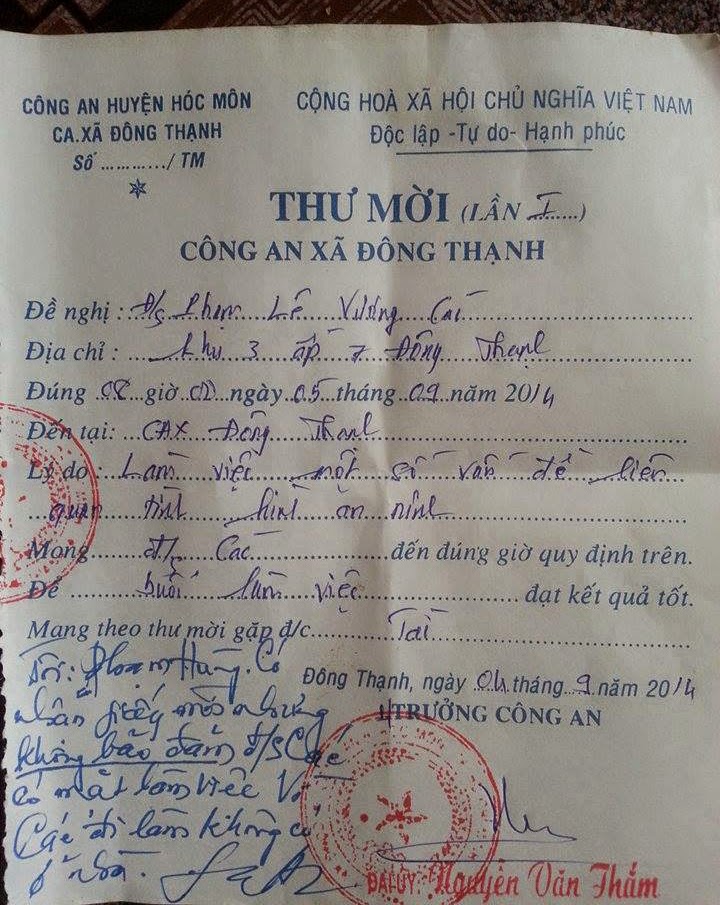 CÔNG AN HUYỆN HÓC MÔN
CA.XÃ ĐÔNG THẠNH
Số ............/ TM
CỘNG HOÀ XÃ HỘI CHỦ NGHĨA VIỆT NAM
Độc lập -Tự do- Hạnh phúc
THƯ MỜI (LẦN I)
CÔNG AN XÃ ĐÔNG THẠNH
Đề nghị : Đ/s Phạm Lê Vương Các
Địa chỉ : khu 3 ấp 7 Đông Thạnh
Đúng 08 giờ 00 ngày 05 tháng 09 năm 2014
Đến tại: CAX Đông Thạnh
Lý do : Làm việc một số vấn đề liên
quan tình hình an ninh
Mong đ/s Các đến đúng giờ quy định trên.
Để buổi làm việc đạt kết quả tốt.
Mang theo thư mời gặp đ/c Tài
Đông Thạnh, ngày 04 tháng 9 năm 2014
TRƯỞNG CÔNG AN
Tôi: Phạm Hùng. Có
nhận giấy mời nhưng
không bảo đảm đ/s Các
có mặt làm việc Vì
Các đi làm không có
ở nhà.
ĐẠI ÚY: Nguyễn Văn Thắm